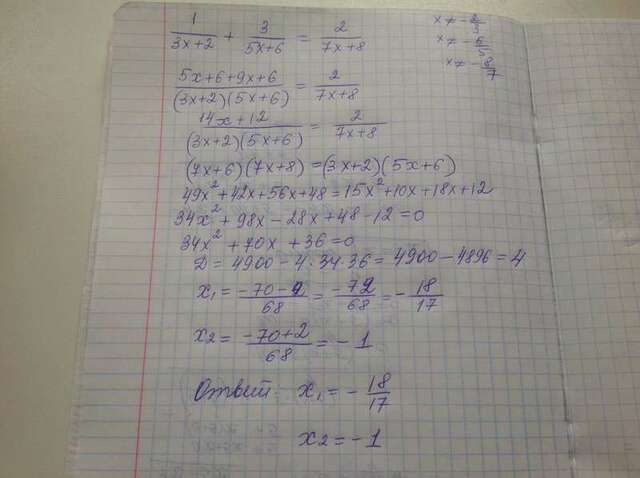 1/(3x+2) + 3/(5x+6) = 2/(7x+8)
x ≠ -2/3
x ≠ -6/5
x ≠ -8/7
(5x+6+9x+6)/((3x+2)(5x+6)) = 2/(7x+8)
(14x+12)/((3x+2)(5x+6)) = 2/(7x+8)
(7x+6)(7x+8)=(3x+2)(5x+6)
49x²+42x+56x+48=15x²+10x+18x+12
34x²+98x-28x+48-12=0
34x²+70x+36=0
D=4900-4·34·36=4900-4896=4
x₁=(-70-2)/68=-72/68=-18/17
x₂=(-70+2)/68=-1
Ответ: x₁=-18/17
x₂=-1